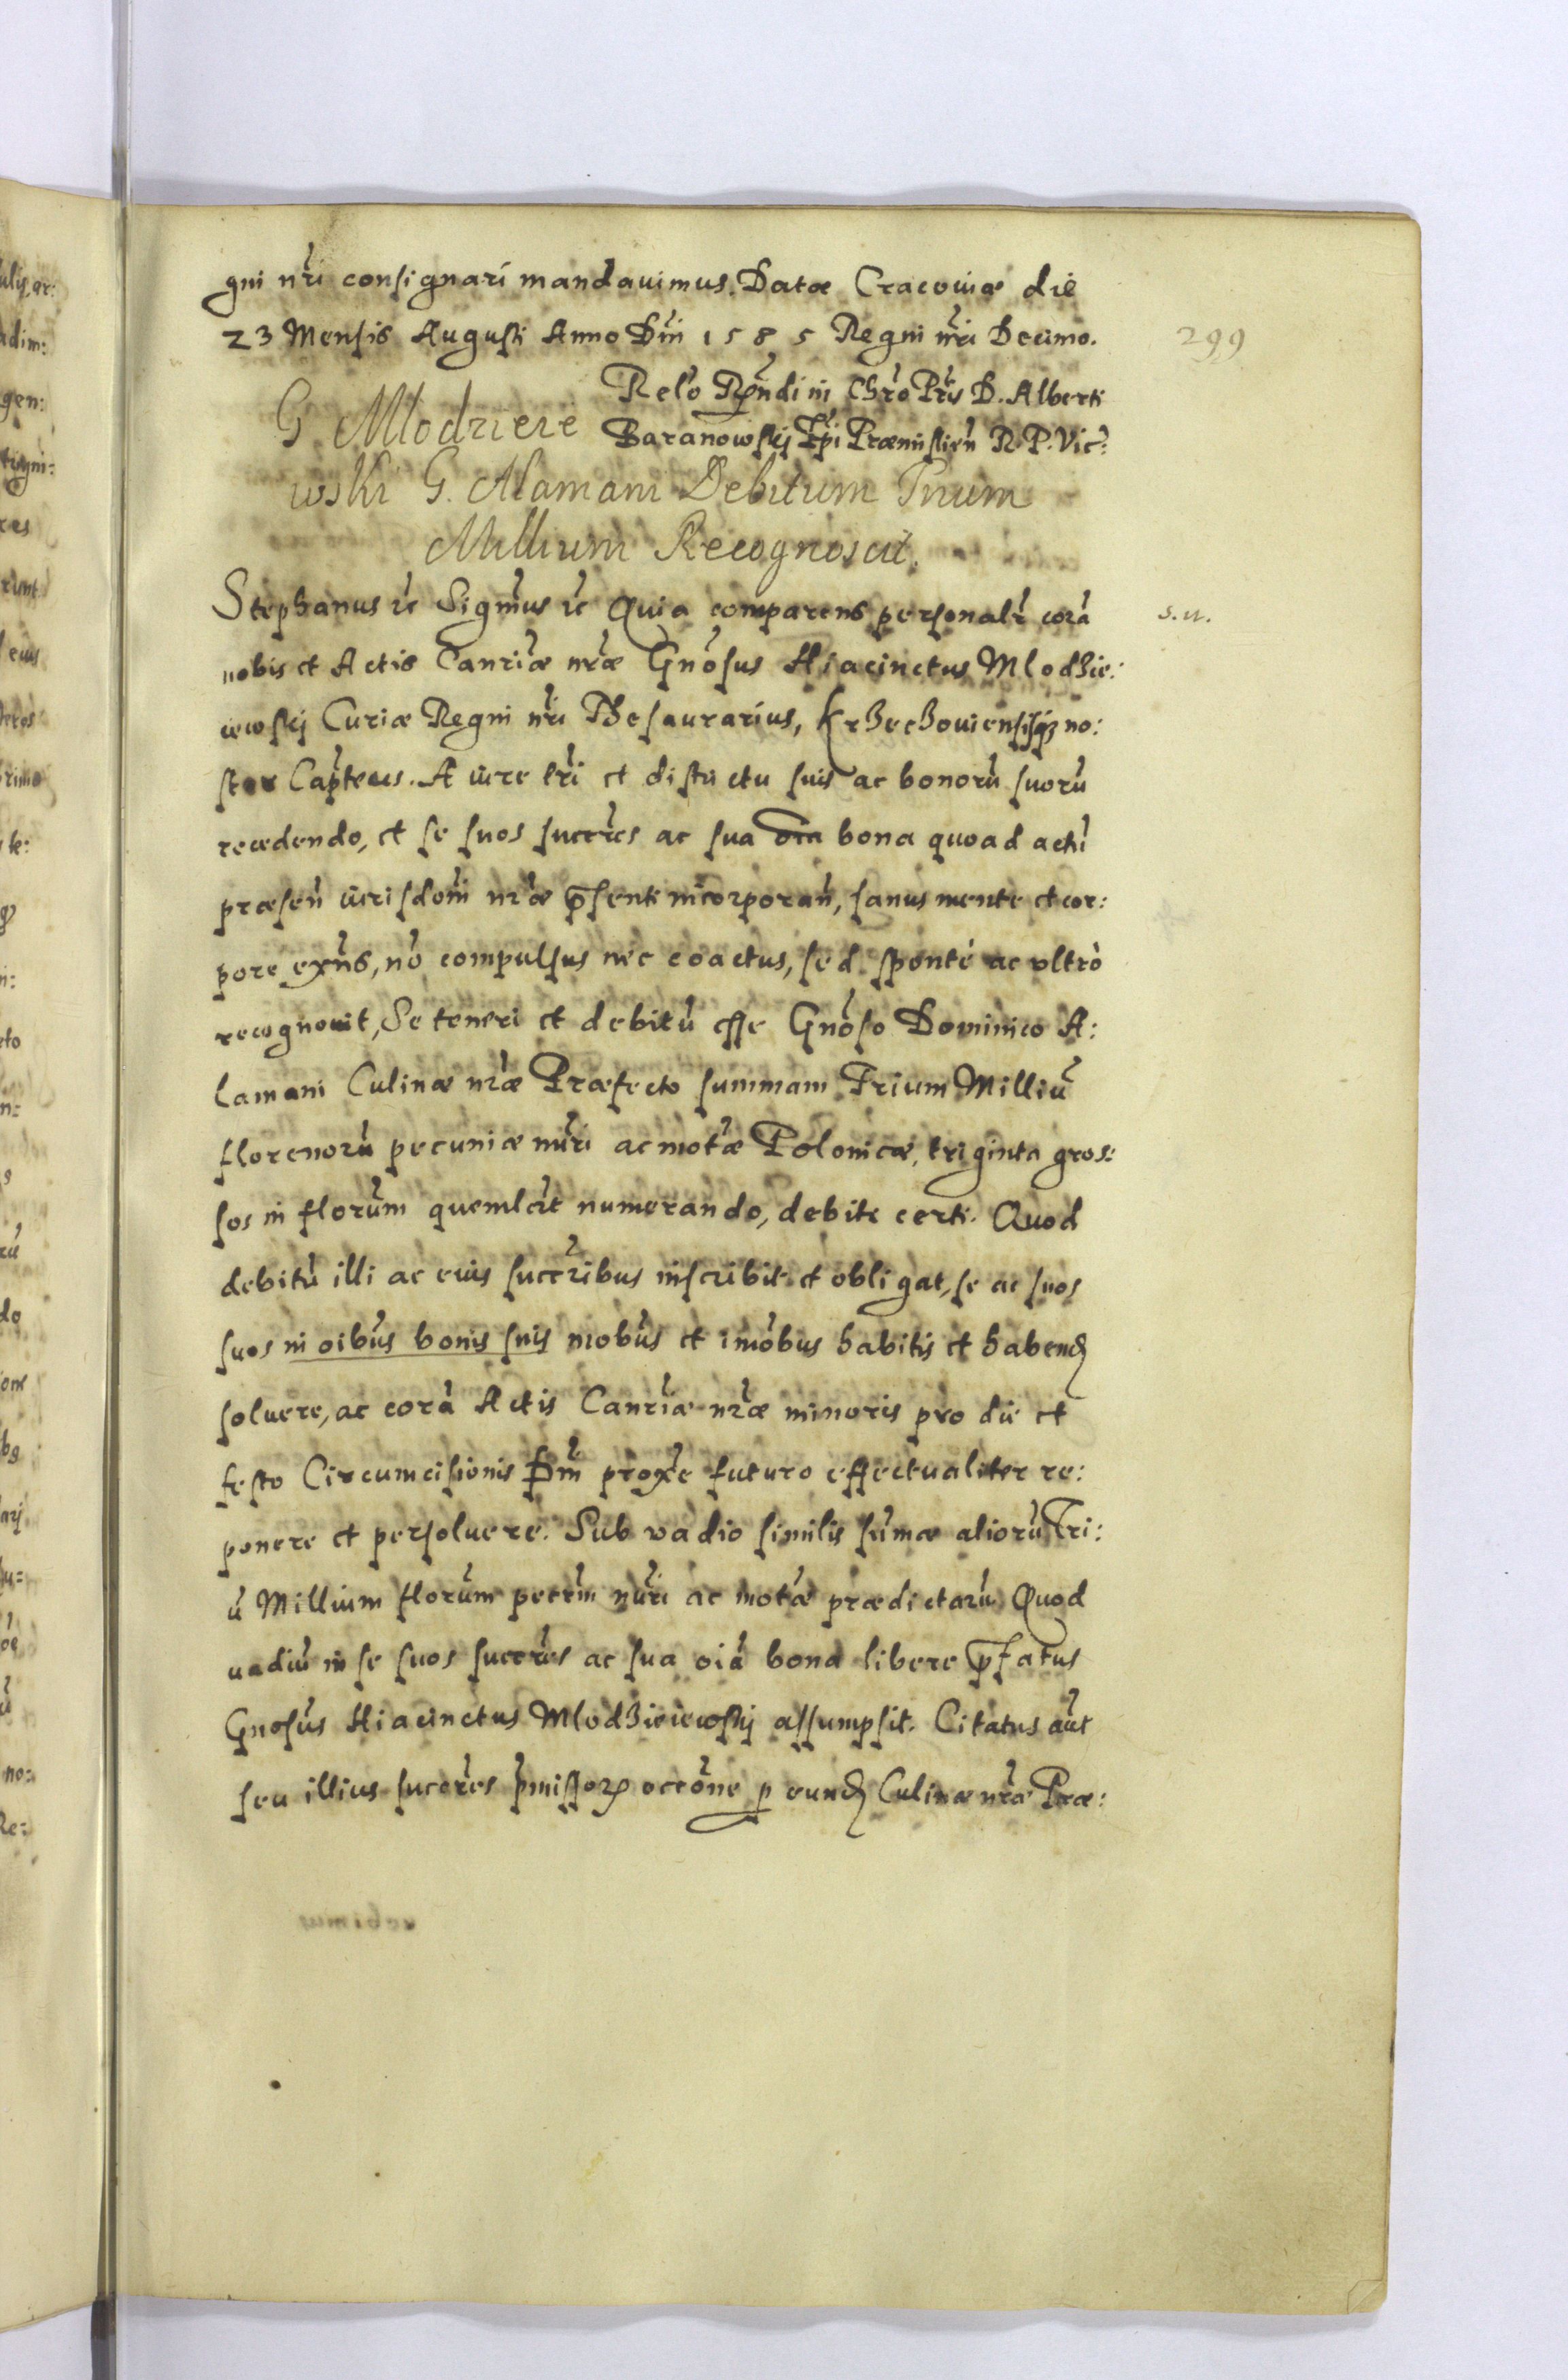 gni nr̃i consignari mandauimus. Datae Cracouiae die
23 Mensis Augusti Anno Dñi 1585 Regni nr̃i Decimo.
299
Relõ Rñdi in Chrõ Pr̃is D. Alberti
G. Mlodzieie
Baranowskj Ep̃i Præmislień R. P. Vic:
wski G. Alamani Debitum Trium
Millium Recognoscit.
Stephanus &c Sigm̃us &c Quia comparens personalr̃ corã
s. n.
nobis et Actis Canr̃iæ nr̃æ Gnõsus Hiacinctus Mlodzie:
iewskj Curiæ Regni nr̃i Thesaurarius, Krzeczouiensisq; no:
ster Cap̃teus. A iure tr̃i et districtu suis ac bonorũ suorũ
recedendo, et se suos succr̃es ac sua oĩa bona quoad actũ
præseñ iurisdom̃ nr̃æ p̃senti incorporañ, sanus mente et cor:
pore exñs, nõ compulsus nec coactus, sed sponte ac vltrò
recognouit, Se teneri et debitũ esse Gnõso Dominico A:
lamani Culinæ nr̃æ Præfecto summam Trium Milliũ
florenorũ pecuniæ nũri ac motæ̃ Polonicæ, triginta gros:
sos in florũm quemlt̃ numerando, debite certi. Quod
debitũ illi ac eius succr̃ibus inscribit et obligat, se ac suos
suos in oĩbus bonis suis mobũs et imõbus habitis et habend
soluere, ac corã Actis Canr̃iæ nr̃æ minoris pro die et
festo Circumcisionis Dñi proxe futuro effectualiter re:
ponere et persoluere. Sub vadio similis sum̃æ aliorũ Tri:
ũ Millium florũm pecũm nũri ac motæ̃ prædictarũ Quod
uadiũ in se suos succr̃es ac sua oĩa bona libere p̃fatus
Gnosũs Hiacinctus Mlodzieiewskj assumpsit. Citatus aũt
seu illius succr̃es p̃missorꝝ occõne p eund Culinæ nr̃æ Præ: